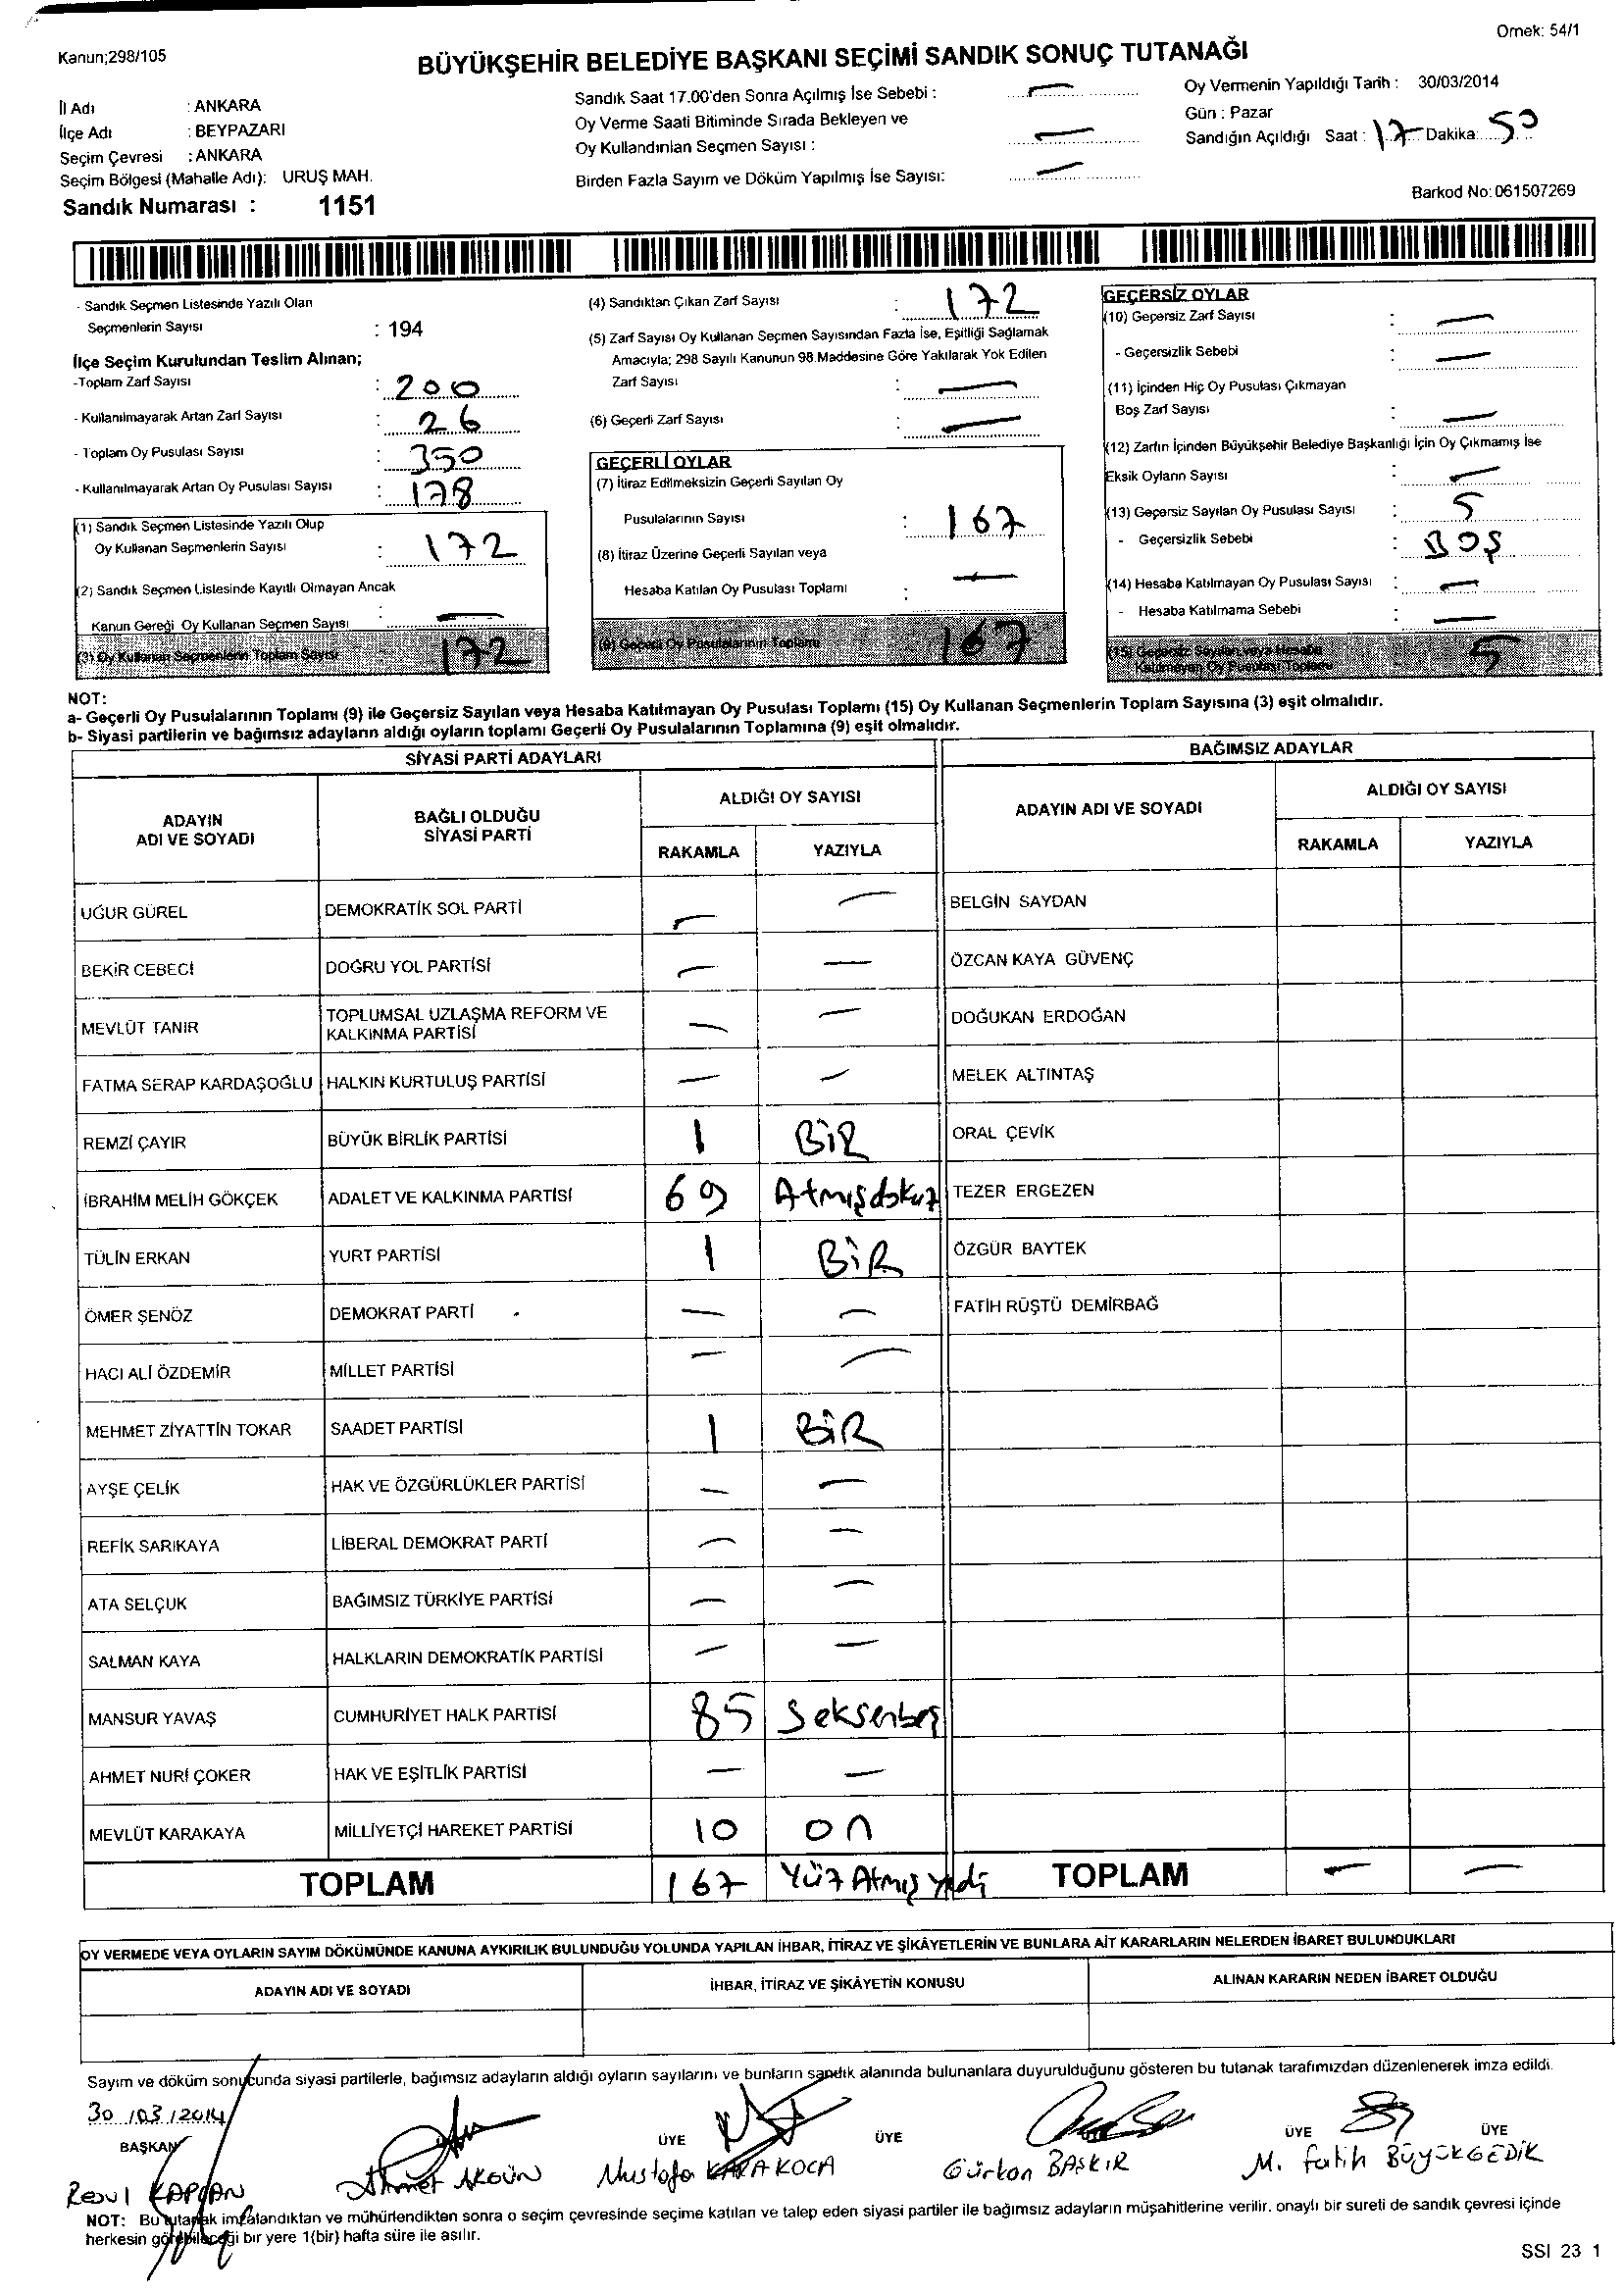 Örnek: 54/1
Kanun;298/105
BÜYÜKŞEHİR BELEDİYE BAŞKANI SEÇİMİ SANDIK SONUÇ TUTANAĞI
İl Adı : ANKARA
İlçe Adı : BEYPAZARI
Seçim Çevresi : ANKARA
Seçim Bölgesi (Mahalle Adı): URUŞ MAH.
Sandık Numarası : 1151
Sandık Saat 17.00'den Sonra Açılmış İse Sebebi : —
Oy Verme Saati Bitiminde Sırada Bekleyen ve
Oy Kullandırılan Seçmen Sayısı : —
Birden Fazla Sayım ve Döküm Yapılmış İse Sayısı: —
Oy Vermenin Yapıldığı Tarih : 30/03/2014
Gün : Pazar
Sandığın Açıldığı Saat : 17 Dakika: 50
Barkod No: 061507269
- Sandık Seçmen Listesinde Yazılı Olan
Seçmenlerin Sayısı : 194
İlçe Seçim Kurulundan Teslim Alınan;
-Toplam Zarf Sayısı : 200
- Kullanılmayarak Artan Zarf Sayısı : 26
- Toplam Oy Pusulası Sayısı : 350
- Kullanılmayarak Artan Oy Pusulası Sayısı : 178
(1) Sandık Seçmen Listesinde Yazılı Olup
Oy Kullanan Seçmenlerin Sayısı : 172
(2) Sandık Seçmen Listesinde Kayıtlı Olmayan Ancak
Kanun Gereği Oy Kullanan Seçmen Sayısı : —
(3) Oy Kullanan Seçmenlerin Toplam Sayısı 172
(4) Sandıktan Çıkan Zarf Sayısı : 172
(5) Zarf Sayısı Oy Kullanan Seçmen Sayısından Fazla İse, Eşitliği Sağlamak
Amacıyla; 298 Sayılı Kanunun 98.Maddesine Göre Yakılarak Yok Edilen
Zarf Sayısı : —
(6) Geçerli Zarf Sayısı : —
GEÇERLİ OYLAR
(7) İtiraz Edilmeksizin Geçerli Sayılan Oy
Pusulalarının Sayısı : 167
(8) İtiraz Üzerine Geçerli Sayılan veya
Hesaba Katılan Oy Pusulası Toplamı : —
(9) Geçerli Oy Pusulalarının Toplamı 167
GEÇERSİZ OYLAR
(10) Geçersiz Zarf Sayısı : —
- Geçersizlik Sebebi : —
(11) İçinden Hiç Oy Pusulası Çıkmayan
Boş Zarf Sayısı : —
(12) Zarfın İçinden Büyükşehir Belediye Başkanlığı İçin Oy Çıkmamış İse
Eksik Oyların Sayısı : —
(13) Geçersiz Sayılan Oy Pusulası Sayısı : 5
- Geçersizlik Sebebi : BOŞ
(14) Hesaba Katılmayan Oy Pusulası Sayısı : —
- Hesaba Katılmama Sebebi : —
(15) Geçersiz Sayılan veya Hesaba
Katılmayan Oy Pusulası Toplamı 5
NOT:
a- Geçerli Oy Pusulalarının Toplamı (9) ile Geçersiz Sayılan veya Hesaba Katılmayan Oy Pusulası Toplamı (15) Oy Kullanan Seçmenlerin Toplam Sayısına (3) eşit olmalıdır.
b- Siyasi partilerin ve bağımsız adayların aldığı oyların toplamı Geçerli Oy Pusulalarının Toplamına (9) eşit olmalıdır.
SİYASİ PARTİ ADAYLARI BAĞIMSIZ ADAYLAR
ADAYIN ADI VE SOYADI BAĞLI OLDUĞU SİYASİ PARTİ ALDIĞI OY SAYISI ADAYIN ADI VE SOYADI ALDIĞI OY SAYISI
RAKAMLA YAZIYLA RAKAMLA YAZIYLA
UĞUR GÜREL DEMOKRATİK SOL PARTİ — — BELGİN SAYDAN
BEKİR CEBECİ DOĞRU YOL PARTİSİ — — ÖZCAN KAYA GÜVENÇ
MEVLÜT TANIR TOPLUMSAL UZLAŞMA REFORM VE KALKINMA PARTİSİ — — DOĞUKAN ERDOĞAN
FATMA SERAP KARDAŞOĞLU HALKIN KURTULUŞ PARTİSİ — — MELEK ALTINTAŞ
REMZİ ÇAYIR BÜYÜK BİRLİK PARTİSİ 1 BİR ORAL ÇEVİK
İBRAHİM MELİH GÖKÇEK ADALET VE KALKINMA PARTİSİ 69 Atmışdokuz TEZER ERGEZEN
TÜLİN ERKAN YURT PARTİSİ 1 BİR ÖZGÜR BAYTEK
ÖMER ŞENÖZ DEMOKRAT PARTİ — — FATİH RÜŞTÜ DEMİRBAĞ
HACI ALİ ÖZDEMİR MİLLET PARTİSİ — —
MEHMET ZİYATTİN TOKAR SAADET PARTİSİ 1 BİR
AYŞE ÇELİK HAK VE ÖZGÜRLÜKLER PARTİSİ — —
REFİK SARIKAYA LİBERAL DEMOKRAT PARTİ — —
ATA SELÇUK BAĞIMSIZ TÜRKİYE PARTİSİ — —
SALMAN KAYA HALKLARIN DEMOKRATİK PARTİSİ — —
MANSUR YAVAŞ CUMHURİYET HALK PARTİSİ 85 Seksenbeş
AHMET NURİ ÇOKER HAK VE EŞİTLİK PARTİSİ — —
MEVLÜT KARAKAYA MİLLİYETÇİ HAREKET PARTİSİ 10 on
TOPLAM 167 Yüz Atmış Yedi TOPLAM — —
OY VERMEDE VEYA OYLARIN SAYIM DÖKÜMÜNDE KANUNA AYKIRILIK BULUNDUĞU YOLUNDA YAPILAN İHBAR, İTİRAZ VE ŞİKÂYETLERİN VE BUNLARA AİT KARARLARIN NELERDEN İBARET BULUNDUKLARI
ADAYIN ADI VE SOYADI İHBAR, İTİRAZ VE ŞİKÂYETİN KONUSU ALINAN KARARIN NEDEN İBARET OLDUĞU
Sayım ve döküm sonucunda siyasi partilerle, bağımsız adayların aldığı oyların sayılarını ve bunların sandık alanında bulunanlara duyurulduğunu gösteren bu tutanak tarafımızdan düzenlenerek imza edildi.
30/03/2014
BAŞKAN ÜYE ÜYE ÜYE ÜYE
Resul KAPLAN Ahmet AKGÜN Mustafa KARAKOCA Gürkan BAŞKIR M. Fatih BÜYÜKGEDİK
NOT: Bu tutanak imzalandıktan ve mühürlendikten sonra o seçim çevresinde seçime katılan ve talep eden siyasi partiler ile bağımsız adayların müşahitlerine verilir. onaylı bir sureti de sandık çevresi içinde
herkesin görebileceği bir yere 1(bir) hafta süre ile asılır.
SSI 23 1